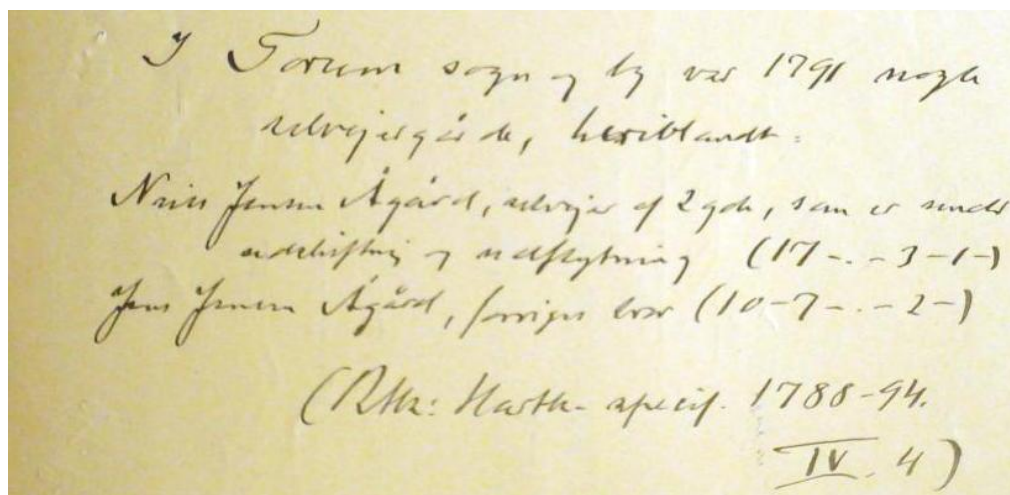 I Torum sogn og by var 1791 nogle
selvejergårde, heriblandt:
Niels Jensen Ågård, selvejer af 2 gde, som er under
udskiftning og udflytning (17-.-3-1-)
Jens Jensen Ågård, forriges bror (10-7-.-2-)
(Rtk: Hartk. specif. 1788-94.
IV. 4)